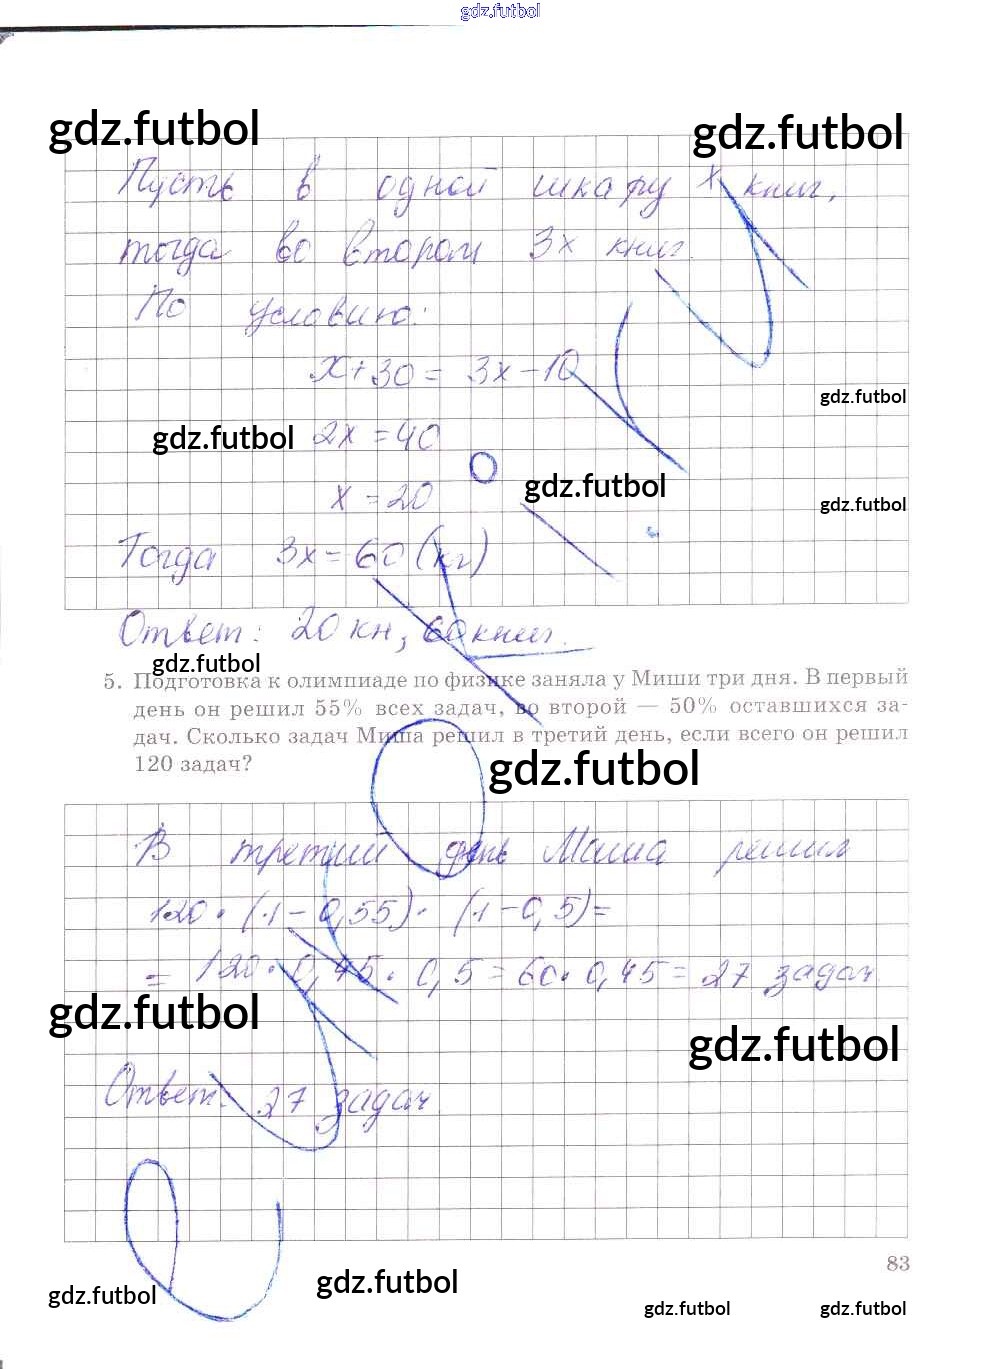 gdz.futbol
gdz.futbol gdz.futbol
Пусть в одной шкафу х книг,
тогда во втором 3х книг.
По условию:
х+30 = 3х-10
gdz.futbol
gdz.futbol 2х = 40
gdz.futbol
х = 20
gdz.futbol
Тогда 3х = 60 (кг)
Ответ: 20 кн, 60 книг.
gdz.futbol
5. Подготовка к олимпиаде по физике заняла у Миши три дня. В первый
день он решил 55% всех задач, во второй — 50% оставшихся за-
дач. Сколько задач Миша решил в третий день, если всего он решил
120 задач?
gdz.futbol
В третий день Маша решил
120 · (1 - 0,55) · (1 - 0,5) =
= 120 · 0,45 · 0,5 = 60 · 0,45 = 27 задач
gdz.futbol
gdz.futbol
Ответ: 27 задач.
83
gdz.futbol
gdz.futbol
gdz.futbol gdz.futbol